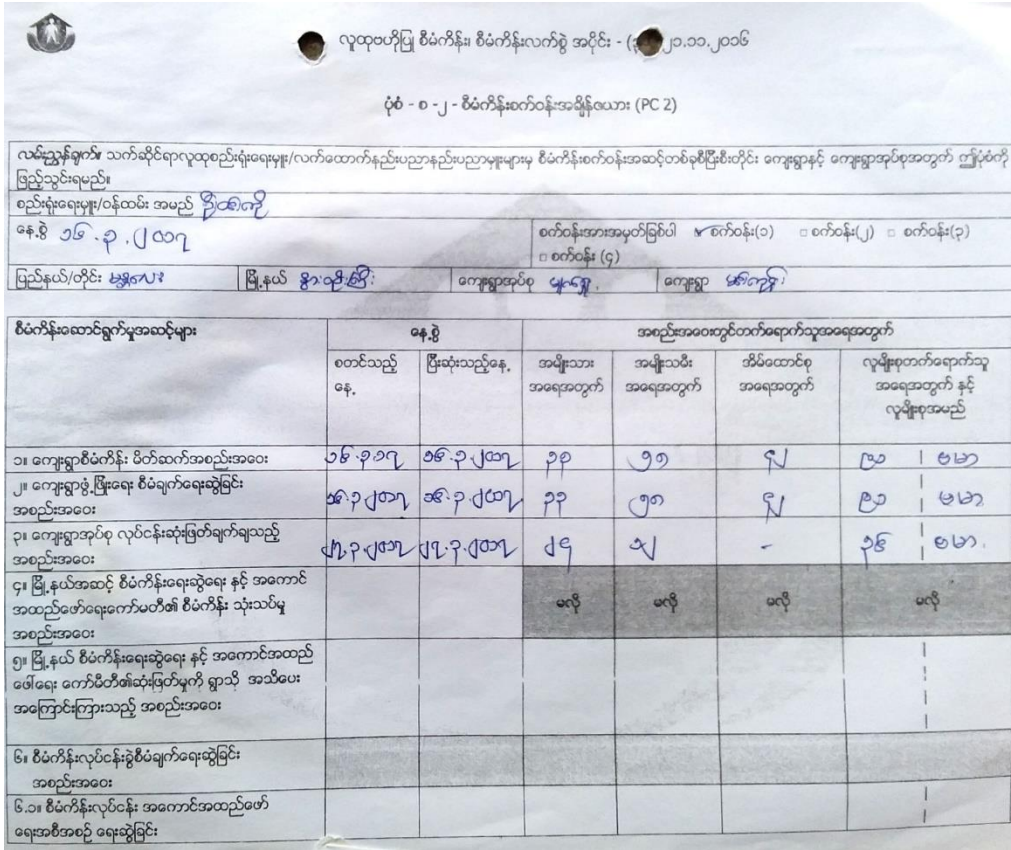 လူထုဗဟိုပြု စီမံကိန်း၊ စီမံကိန်းလက်စွဲ အပိုင်း - (၃ ၂၁.၁၁.၂၀၁၆
ပုံစံ - စ -၂ - စီမံကိန်းစက်ဝန်းအချိန်ဇယား (PC 2)
လမ်းညွှန်ချက်။ သက်ဆိုင်ရာလူထုစည်းရုံးရေးမှူး/လက်ထောက်နည်းပညာနည်းပညာမှူးများမှ စီမံကိန်းစက်ဝန်းအဆင့်တစ်ခုစီပြီးစီးတိုင်း ကျေးရွာနှင့် ကျေးရွာအုပ်စုအတွက် ဤပုံစံကို
ဖြည့်သွင်းရမည်။
စည်းရုံးရေးမှူး/ဝန်ထမ်း အမည်
နေ့စွဲ ၁၆.၃.၂၀၁၇
စက်ဝန်းအားအမှတ်ခြစ်ပါ ✓ စက်ဝန်း(၁) □ စက်ဝန်း(၂) □ စက်ဝန်း(၃)
□ စက်ဝန်း (၄)
ပြည်နယ်/တိုင်း မန္တလေး မြို့နယ် ကျေးရွာအုပ်စု ကျေးရွာ
စီမံကိန်းဆောင်ရွက်မှုအဆင့်များ နေ့စွဲ အစည်းအဝေးတွင်တက်ရောက်သူအရေအတွက်
စတင်သည့် ပြီးဆုံးသည့်နေ့ အမျိုးသား အမျိုးသမီး အိမ်ထောင်စု လူမျိုးစုတက်ရောက်သူ
နေ့ အရေအတွက် အရေအတွက် အရေအတွက် အရေအတွက် နှင့်
လူမျိုးစုအမည်
၁။ ကျေးရွာစီမံကိန်း မိတ်ဆက်အစည်းအဝေး ၁၆.၃.၁၇ ၁၆.၃.၂၀၁၇ ၃၃ ၅၈ ၄၂ ၉၁ ဗမာ
၂။ ကျေးရွာဖွံ့ဖြိုးရေး စီမံချက်ရေးဆွဲခြင်း
အစည်းအဝေး ၁၆.၃.၂၀၁၇ ၁၆.၃.၂၀၁၇ ၃၃ ၅၈ ၄၂ ၉၁ ဗမာ
၃။ ကျေးရွာအုပ်စု လုပ်ငန်းဆုံးဖြတ်ချက်ချသည့်
အစည်းအဝေး ၂၇.၃.၂၀၁၇ ၂၇.၃.၂၀၁၇ ၂၄ ၁၂ - ၃၆ ဗမာ
၄။ မြို့နယ်အဆင့် စီမံကိန်းရေးဆွဲရေး နှင့် အကောင်
အထည်ဖော်ရေးကော်မတီ၏ စီမံကိန်း သုံးသပ်မှု
အစည်းအဝေး မလို မလို မလို မလို
၅။ မြို့နယ် စီမံကိန်းရေးဆွဲရေး နှင့် အကောင်အထည်
ဖေါ်ရေး ကော်မီတီ၏ဆုံးဖြတ်မှုကို ရွာသို အသိပေး
အကြောင်းကြားသည့် အစည်းအဝေး
၆။ စီမံကိန်းလုပ်ငန်းခွဲစီမံချက်ရေးဆွဲခြင်း
အစည်းအဝေး
၆.၁။ စီမံကိန်းလုပ်ငန်း အကောင်အထည်ဖော်
ရေးအစီအစဉ် ရေးဆွဲခြင်း